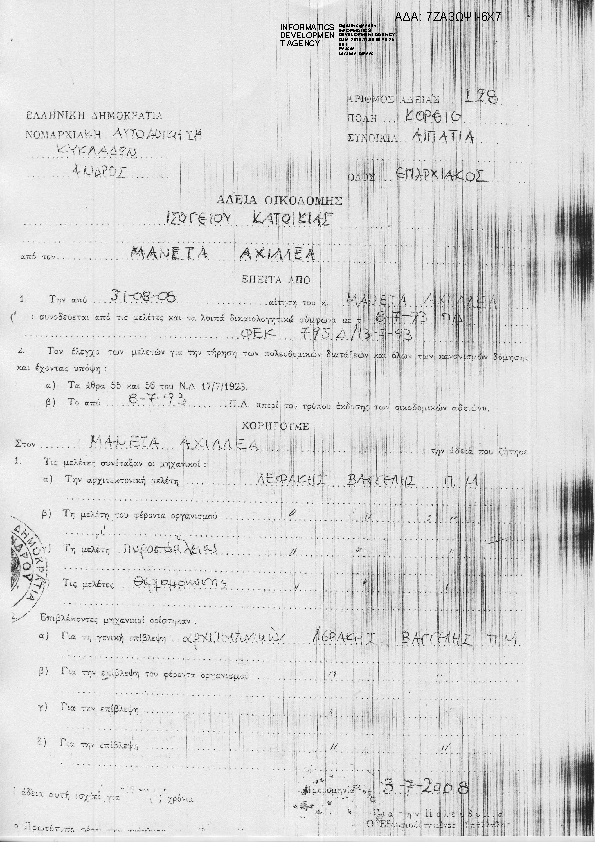 ΑΔΑ: 7ΖΑ3ΟΨΙ-6Χ7
INFORMATICS
DEVELOPMEN
T AGENCY
ΑΡΙΘΜΟΣ ΑΔΕΙΑΣ 128
ΕΛΛΗΝΙΚΗ ΔΗΜΟΚΡΑΤΙΑ
ΠΟΛΗ ΚΟΡΘΙΟ
ΝΟΜΑΡΧΙΑΚΗ
ΣΥΝΟΙΚΙΑ ΑΙΠΑΤΙΑ
ΚΥΚΛΑΔΩΝ
ΑΝΔΡΟΣ
ΟΔΟΣ ΕΠΑΡΧΙΑΚΟΣ
ΑΔΕΙΑ ΟΙΚΟΔΟΜΗΣ
ΙΣΟΓΕΙΟΥ ΚΑΤΟΙΚΙΑΣ
από τον ΜΑΝΕΤΑ ΑΧΙΛΛΕΑ
ΕΠΕΙΤΑ ΑΠΟ
1. Την από 31-08-05 αίτηση του κ. ΜΑΝΕΤΑ ΑΧΙΛΛΕΑ
συνοδεύεται από τις μελέτες και τα λοιπά δικαιολογητικά σύμφωνα με 8-7-93 Π.Δ.
ΦΕΚ 795 Δ/13-7-93
2. Τον έλεγχο των μελετών για την τήρηση των πολεοδομικών διατάξεων και όλων των κανονισμών δόμησης
και έχοντας υπόψη :
α) Τα άθρα 55 και 56 του Ν.Δ 17/7/1923.
β) Το από 8-7-93 Π.Δ. περί του τρόπου έκδοσης των οικοδομικών αδειών.
ΧΟΡΗΓΟΥΜΕ
Στον ΜΑΝΕΤΑ ΑΧΙΛΛΕΑ την άδεια που ζήτησε
1. Τις μελέτες συνέταξαν οι μηχανικοί :
α) Την αρχιτεκτονική μελέτη ΛΕΦΑΚΗΣ ΒΑΓΓΕΛΗΣ Π.Μ
β) Τη μελέτη του φέροντα οργανισμού " " "
γ) Τη μελέτη " " "
Τις μελέτες Θερμομόνωσης " " "
ΔΗΜΟΚΡΑΤΙΑ
Επιβλέποντες μηχανικοί ορίστηκαν :
α) Για τη γενική επίβλεψη ΒΑΓΓΕΛΗΣ Π.Μ.
β) Για την επίβλεψη του φέροντα οργανισμού " "
γ) Για την επίβλεψη " "
δ) Για την επίβλεψη " "
άδεια αυτή ισχύει για χρόνια
Ημερομηνία 3-7-2008